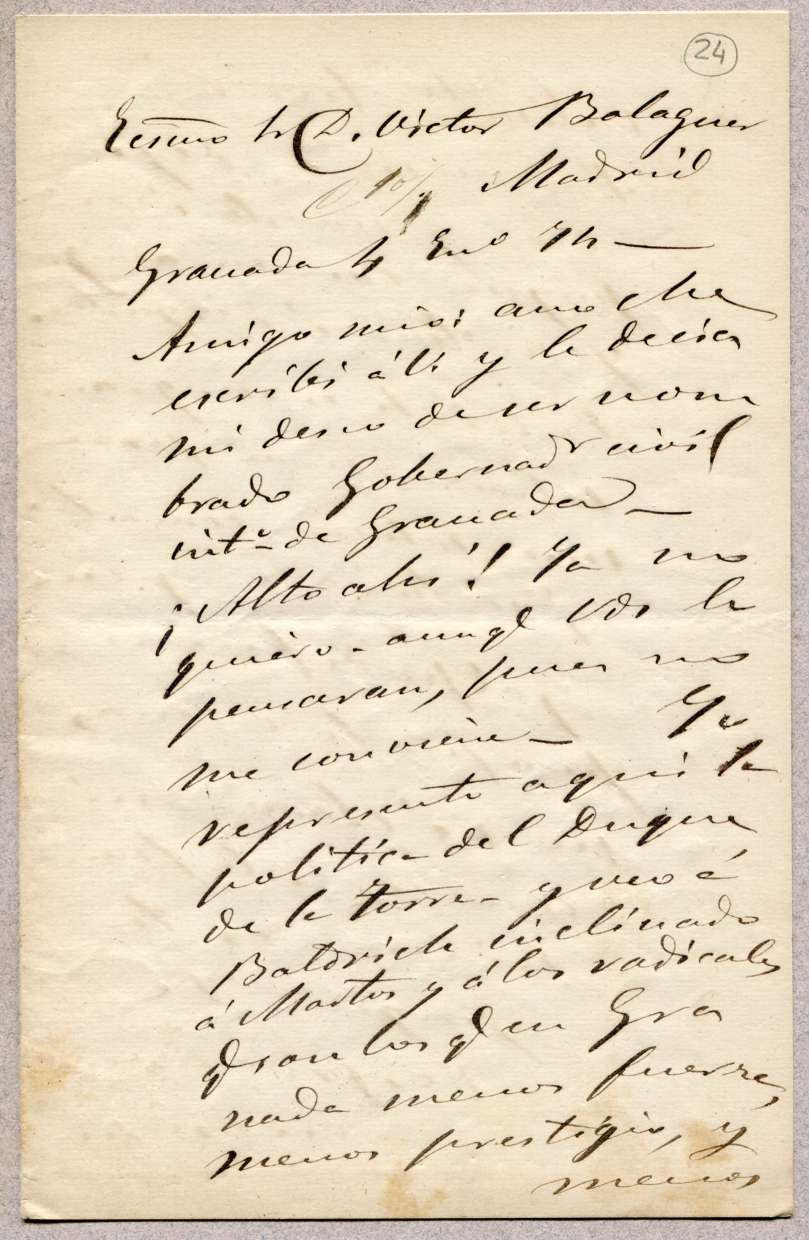 24
Escmo Sr D. Victor Balaguer
Madrid
Granada 4 Eno 74 —
Amigo mio: anoche
escribí á V. y le decia
mi deseo de ser nom
brado Gobernador civil
intº de Granada —
¡Alto ahi! Ya no
quiero - aunq Vds lo
pensaran, pues no
me conviene — Yo
represento aqui la
politica del Duque
de la Torre - y veo á
Baldrich inclinado
á Martos y á los radicales
q son los q en Gra
nada menos fuerza,
menos prestigio, y
menos